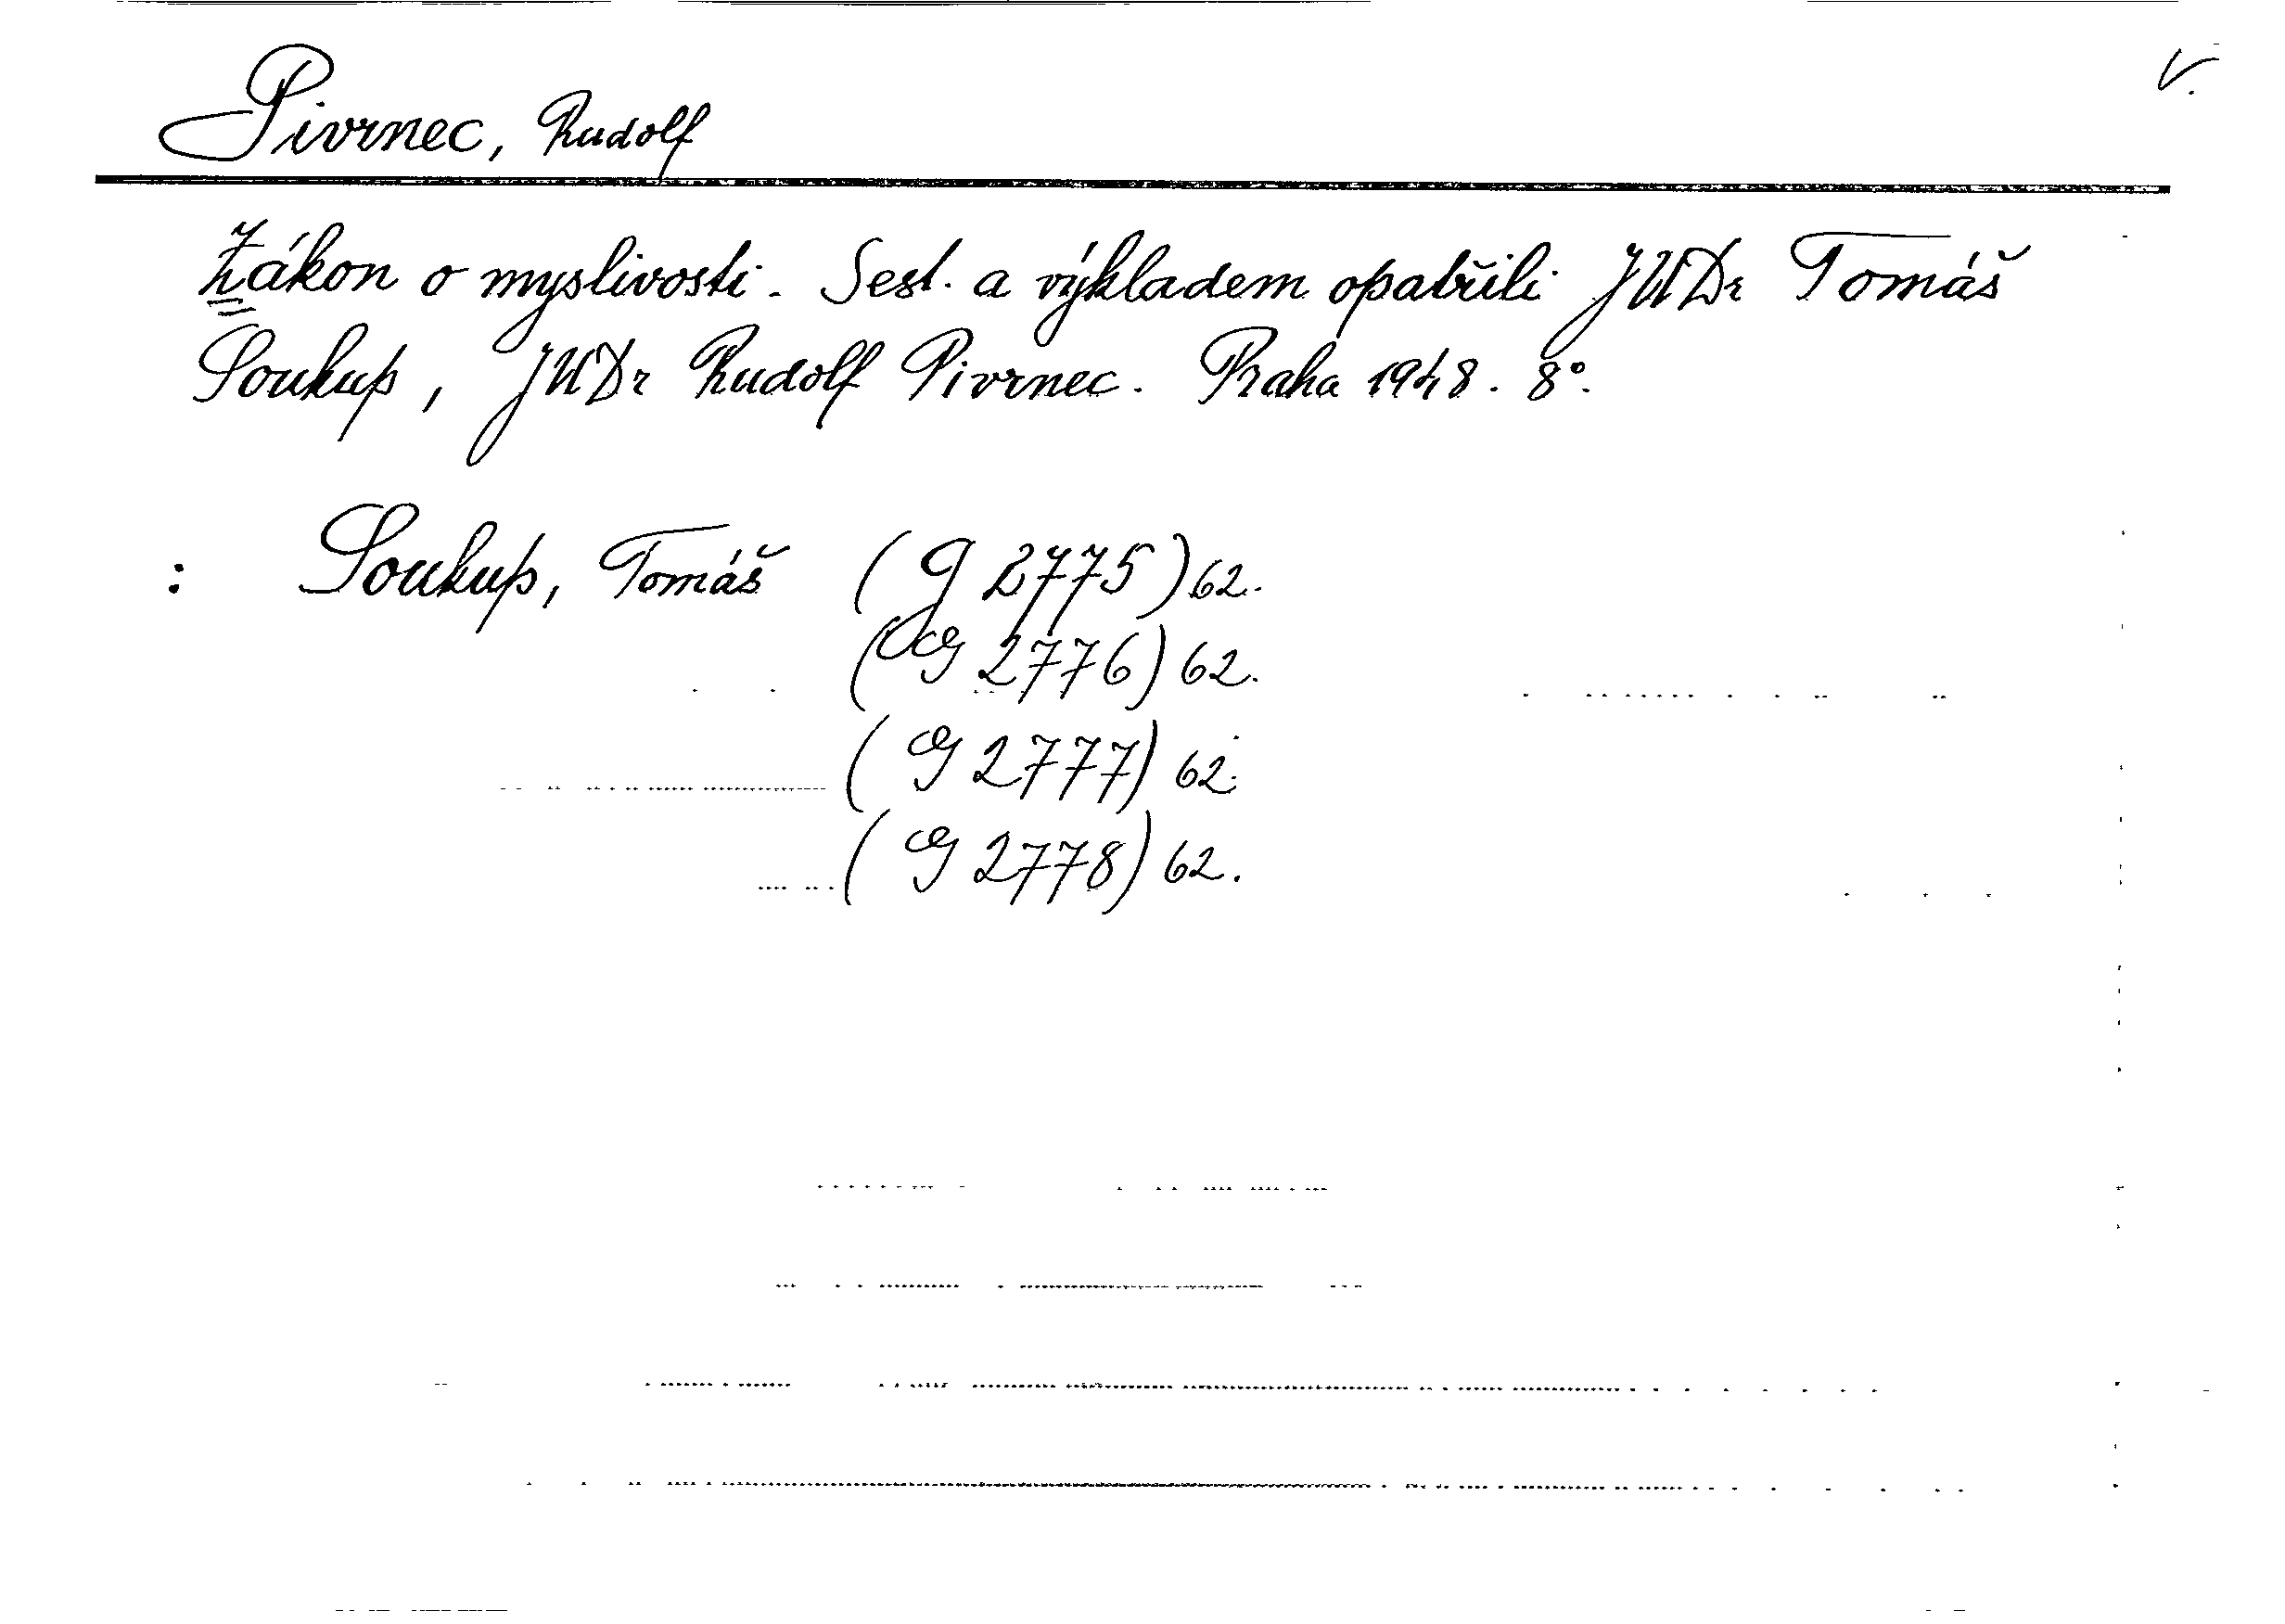 V.
Pivrnec, Rudolf
Zákon o myslivosti. Sest. a výkladem opatřili JUDr Tomáš
Soukup, JUDr Rudolf Pivrnec. Praha 1948. 8°.
: Soukup, Tomáš (G 2775) 62.
(G 2776) 62.
(G 2777) 62.
(G 2778) 62.